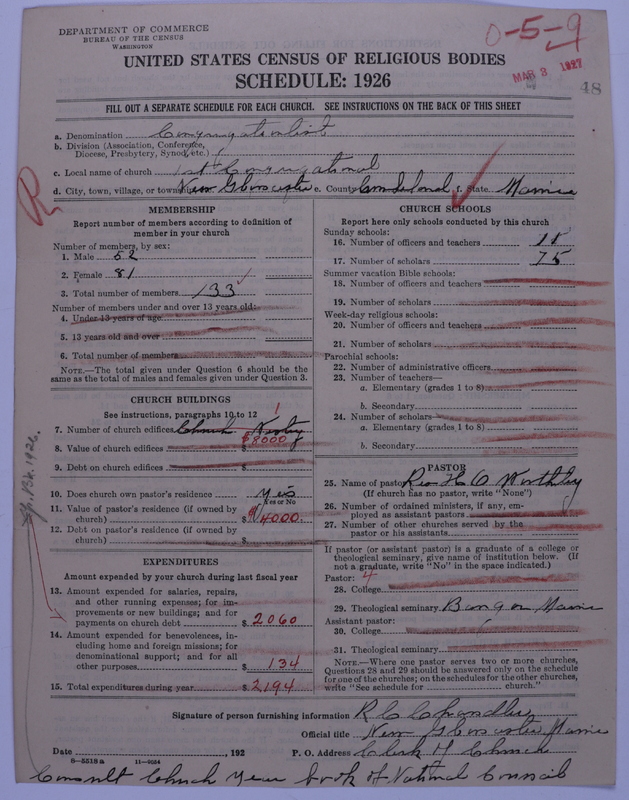 DEPARTMENT OF COMMERCE
BUREAU OF THE CENSUS
WASHINGTON
0-5-9
MAR 3 1927
48
UNITED STATES CENSUS OF RELIGIOUS BODIES
SCHEDULE: 1926
FILL OUT A SEPARATE SCHEDULE FOR EACH CHURCH. SEE INSTRUCTIONS ON THE BACK OF THIS SHEET
a. Denomination Congregationalist
b. Division (Association, Conference, Diocese, Presbytery, Synod, etc.)
c. Local name of church 1st Congregational
d. City, town, village, or township New Gloucester e. County Cumberland f. State Maine
MEMBERSHIP
Report number of members according to definition of
member in your church
Number of members, by sex:
1. Male 52
2. Female 81
3. Total number of members 133
Number of members under and over 13 years old:
4. Under 13 years of age
5. 13 years old and over
6. Total number of members
NOTE.—The total given under Question 6 should be
same as the total of males and females given under Question 3.
CHURCH BUILDINGS
See instructions, paragraphs 10 to 12
1
7. Number of church edifices Church
8. Value of church edifices $8000
9. Debt on church edifices $
10. Does church own pastor's residence yes
Yes or No
11. Value of pastor's residence (if owned by
church) $4000.
12. Debt on pastor's residence (if owned by
church) $
EXPENDITURES
Amount expended by your church during last fiscal year
13. Amount expended for salaries, repairs,
and other running expenses; for im-
provements or new buildings; and for
payments on church debt $2060
14. Amount expended for benevolences, in-
cluding home and foreign missions; for
denominational support; and for all
other purposes $134
15. Total expenditures during year $2194
CHURCH SCHOOLS
Report here only schools conducted by this church
Sunday schools:
16. Number of officers and teachers 15
17. Number of scholars 75
Summer vacation Bible schools:
18. Number of officers and teachers
19. Number of scholars
Week-day religious schools:
20. Number of officers and teachers
21. Number of scholars
Parochial schools:
22. Number of administrative officers
23. Number of teachers—
a. Elementary (grades 1 to 8)
b. Secondary
24. Number of scholars—
a. Elementary (grades 1 to 8)
b. Secondary
PASTOR
25. Name of pastor Rev H O Worthley
(If church has no pastor, write "None")
26. Number of ordained ministers, if any, em-
ployed as assistant pastors
27. Number of other churches served by the
pastor or his assistants
If pastor (or assistant pastor) is a graduate of a college or
theological seminary, give name of institution below. (If
not a graduate, write "No" in the space indicated.)
Pastor: 4
28. College
29. Theological seminary Bangor Maine
Assistant pastor:
30. College
31. Theological seminary
NOTE.—Where one pastor serves two or more churches,
Questions 28 and 29 should be answered only on the schedule
for one of the churches; on the schedules for the other churches,
write "See schedule for church."
Signature of person furnishing information R C Chandler
Official title New Gloucester Maine
Date , 192 P. O. Address Clerk of Church
8—5518a 11—9024
Consult Church Year book of National Council